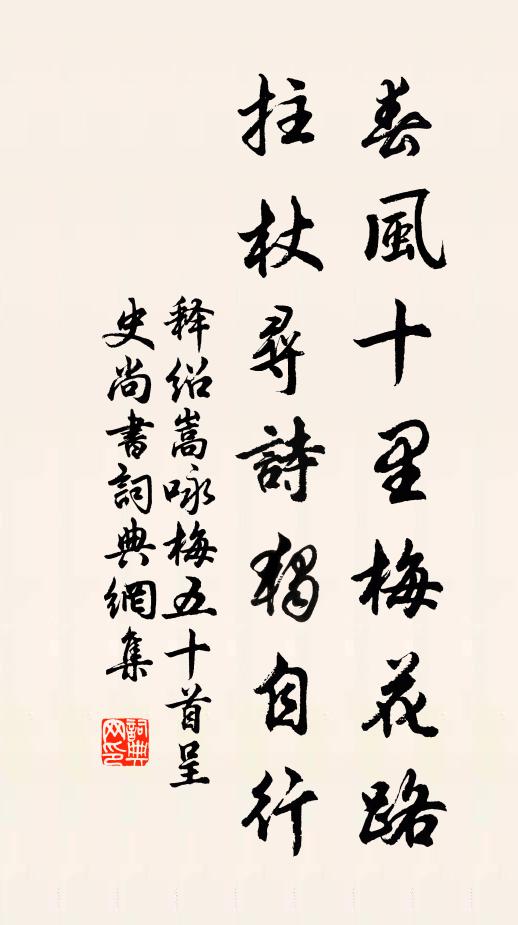 春風十里梅花路
拄杖尋詩獨自行
释绍嵩咏梅五十首呈
史尚書詞典網集
詞典
网印